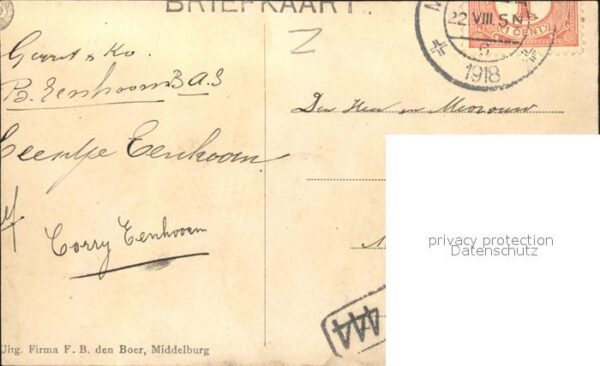 BRIEFKAART.
Gerrit & Ko.
B. Eenhoorn B A S
Leentje Eenhoorn
Corry Eenhoorn
22.VIII.5N
1918
Z
CENT
Den Heer en Mevrouw
privacy protection
Datenschutz
444
Uitg. Firma F. B. den Boer, Middelburg